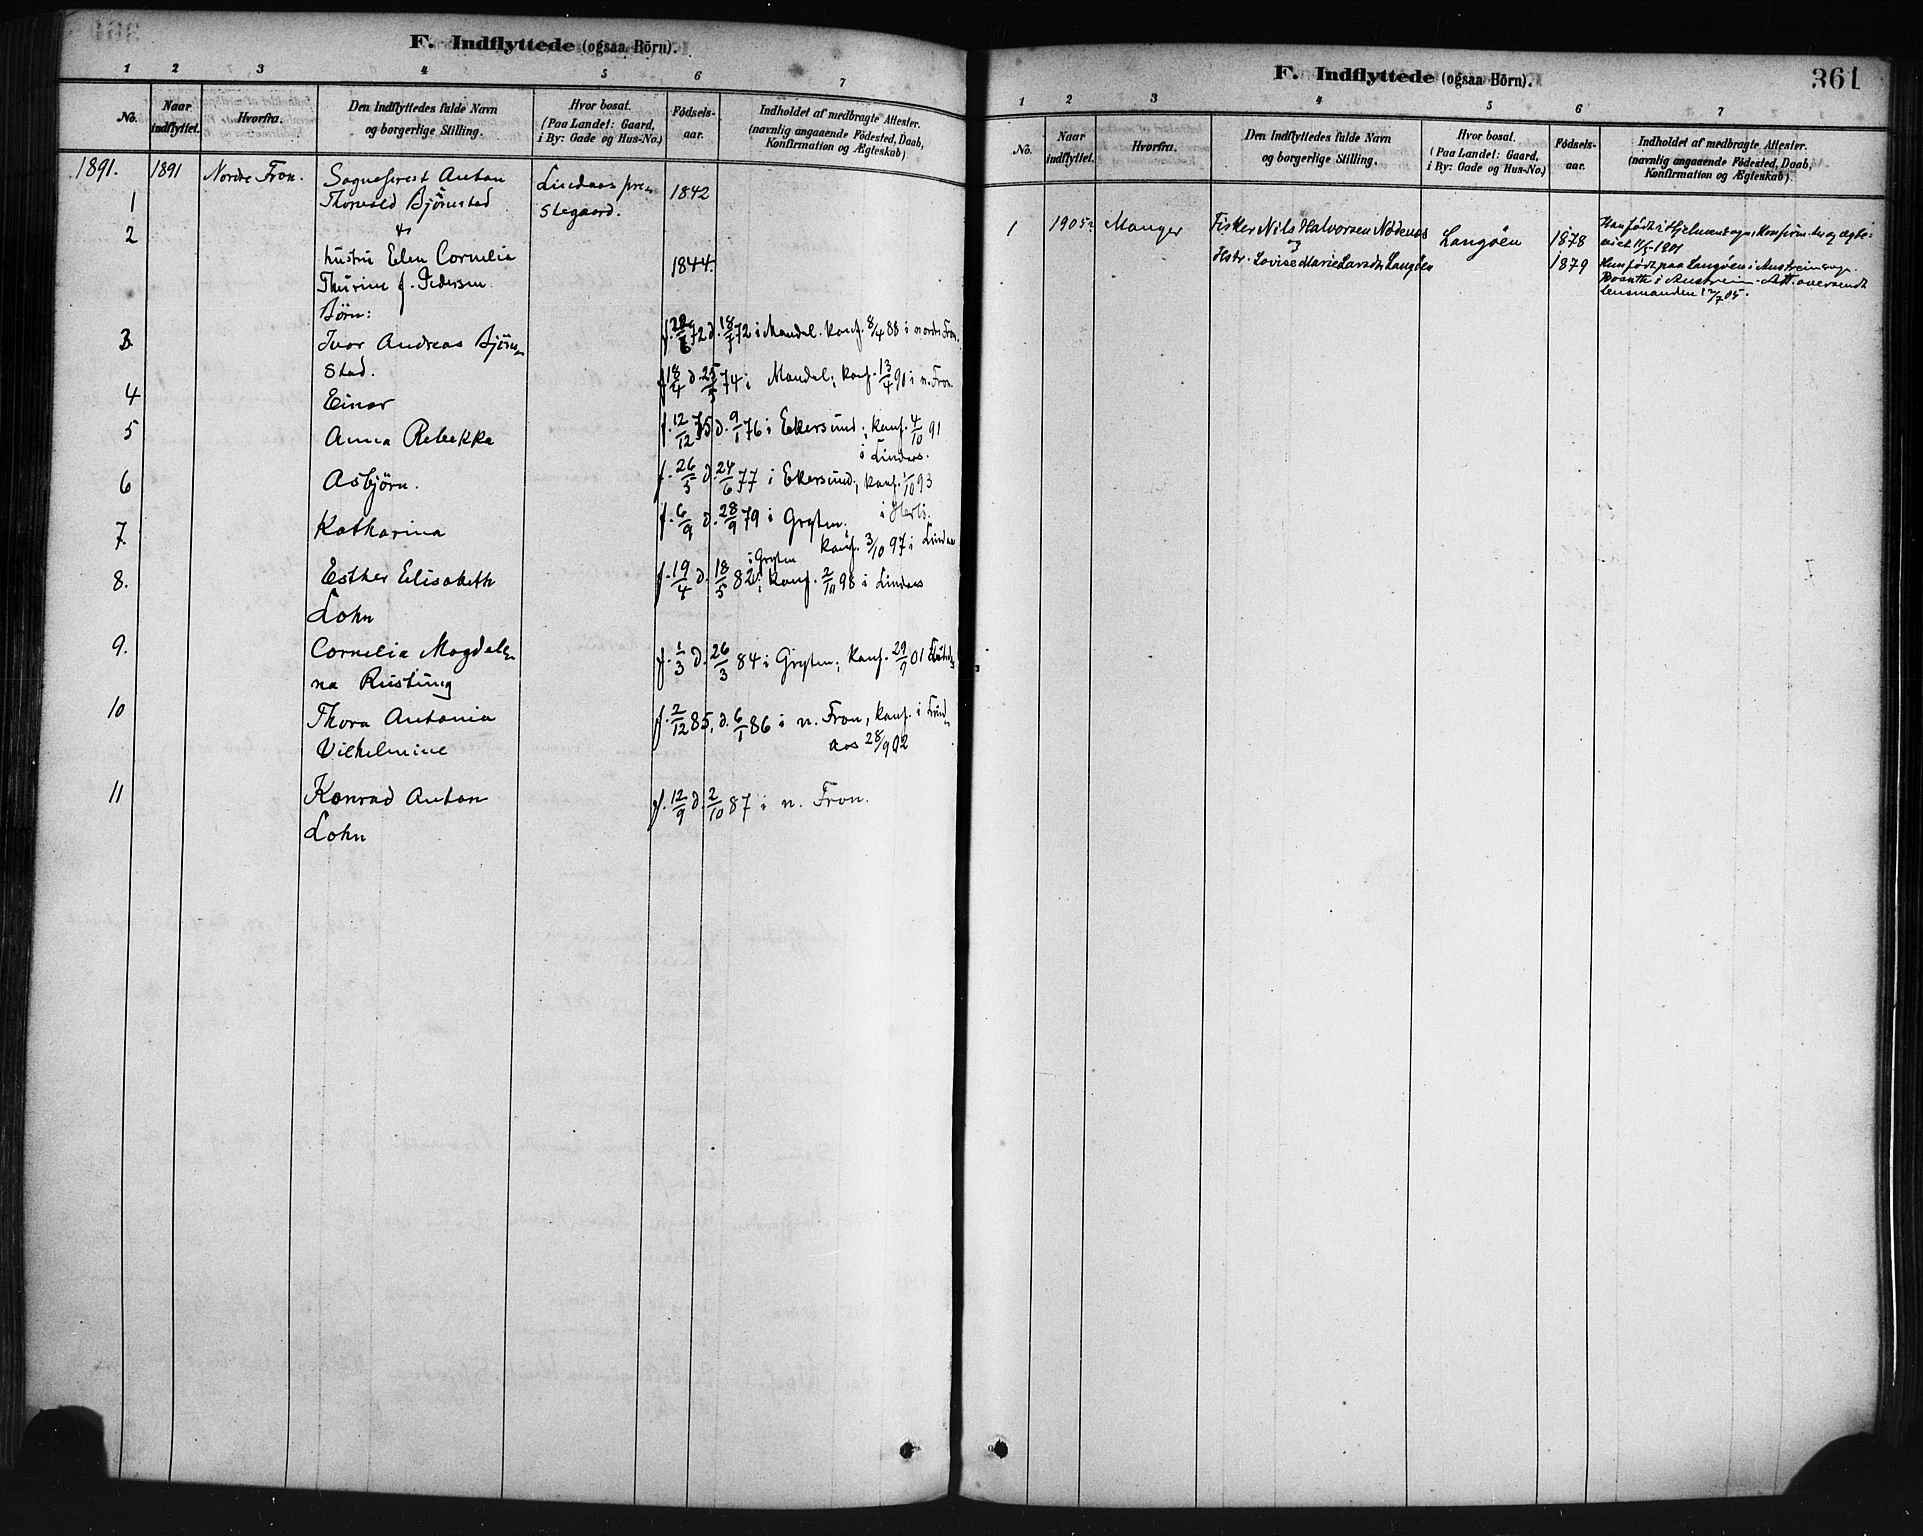 F. Indflyttede (ogsaa Börn).
1 2 3 4 5 6 7
No. Naar indflyttet. Hvorfra. Den Indflyttedes fulde Navn og borgerlige Stilling. Hvor bosat. (Paa Landet: Gaard, i By: Gade og Hus-No.) Födsels-aar. Indholdet af medbragte Attester. (navnlig angaaende Födested, Daab, Konfirmation og Ægteskab)
1891. 1891 Nordre Fron. Sogneprest Anton Lindaas pre-
1 Thorvald Björnstad stegaard. 1842
2 &
hustru Elen Cornelia 1844.
Thurine f. Pedersen.
Börn:
3. Ivar Andreas Björn- f. 28/6 72 d. 18/7 72 i Mandal. konf. 8/4 88 i nordre Fron.
stad.
4 Einar f. 18/4 d. 25/5 74 i Mandal; konf. 13/4 90 i n. Fron.
5 Anna Rebekka f. 12/12 75 d. 9/1 76 i Ekersund; konf. 4/10 91
i Lindaas.
6 Asbjörn. f. 26/5 d. 24/6 77 i Ekersund; konf. 1/10 93
i Herlö.
7. Katharina f. 6/9 d. 28/9 79 i Gryten;
konf. 3/10 97 i Lindaas
8. Esther Elisabeth f. 19/4 d. 18/5 82 i Gryten; konf. 2/10 98 i Lindaas
Lohn
9. Cornelia Magdale- f. 1/3 d. 26/3 84 i Gryten; konf. 29/9 01
na Rustung
10 Thora Antonia f. 2/12 85, d. 6/1 86 i n. Fron, konf. i Lind-
Vilhelmine aas 28/9 02
11 Konrad Anton f. 12/9 d. 2/10 87 i n. Fron.
Lohn
F. Indflyttede (ogsaa Börn).
361
1 2 3 4 5 6 7
No. Naar indflyttet. Hvorfra. Den Indflyttedes fulde Navn og borgerlige Stilling. Hvor bosat. (Paa Landet: Gaard, i By: Gade og Hus-No.) Födsels-aar. Indholdet af medbragte Attester. (navnlig angaaende Födested, Daab, Konfirmation og Ægteskab).
1 1905 Manger Fisker Nils Halvorsen Nödenes Langöen 1878 Han født i Hjelmen sogn, Konfirm. og ægte-
og viet 1901
Hstr. Lovise Marie Larsdtr Langöen 1879 Hun født paa Langöen i Austrein sogn.
Bosatte i Austrein. Att. oversendt
Lensmanden 05.